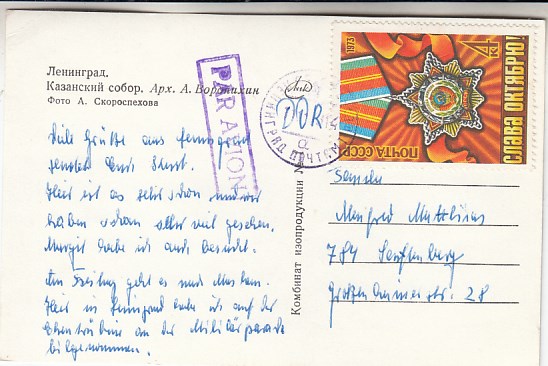 Ленинград.
Казанский собор. Арх. А. Воронихин
Фото А. Скороспехова
PAR AVION
Avia
DDR
1973
4 к
СЛАВА ОКТЯБРЮ!
ПОЧТА СССР
Viele Grüße aus Leningrad
sendet Euch Horst.
Hier ist es sehr schön und wir
haben schon alles viel gesehen.
habe ich auch besucht.
Am Freitag geht es nach Moskau.
Hier in Leningrad habe ich auf der
Ehrentribüne an der Militärparade
teilgenommen.
Комбинат изопродукции
Familie
Manfred Matthias
784 Senftenberg
Großenhainer str. 28